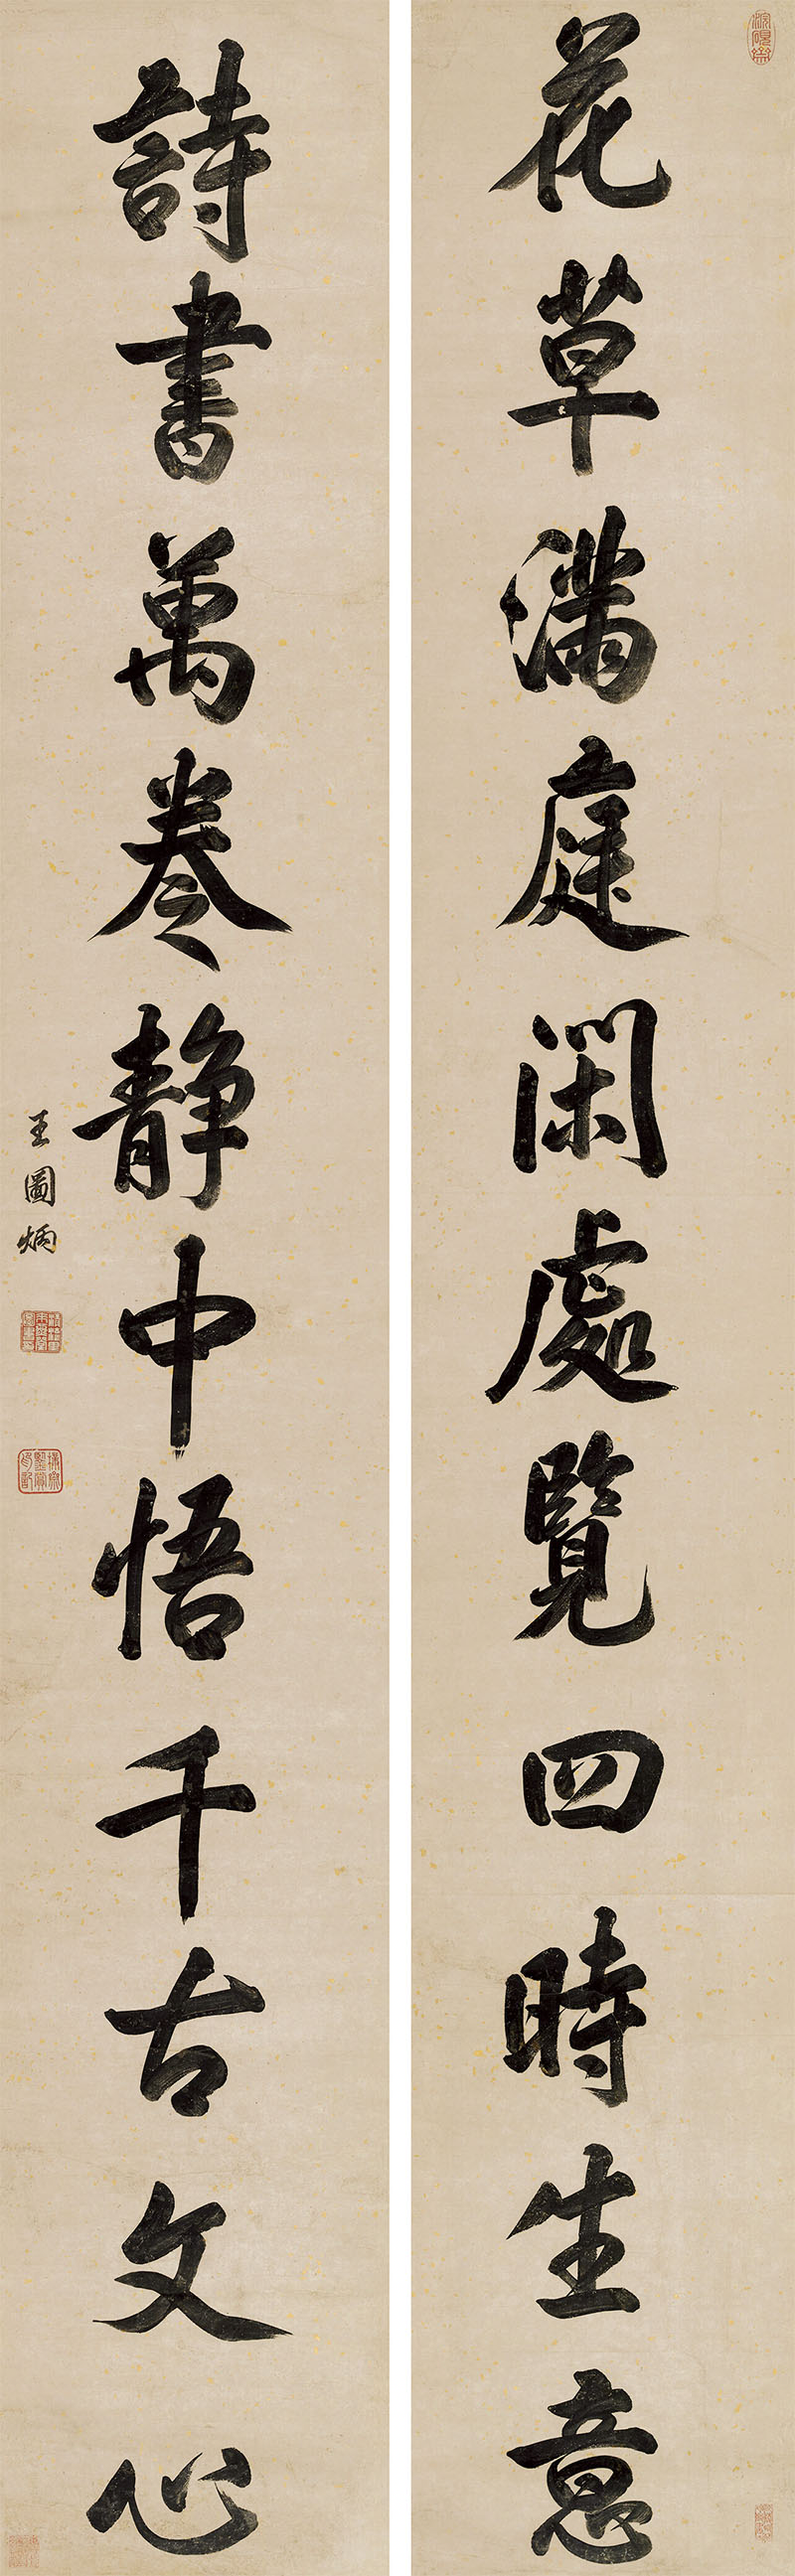 花草滿庭閑處覽四時生意
詩書萬卷靜中悟千古文心
王圖炳